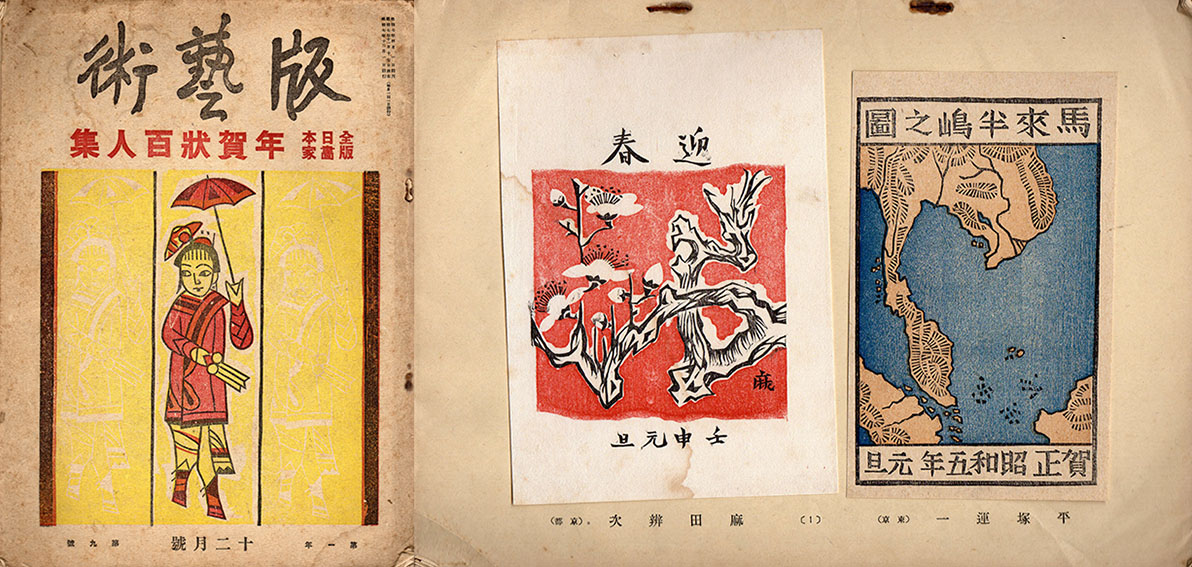 版藝術
全日本
版畫家
年賀狀百人集
第一年
十二月號
第九號
馬來半嶋之圖
賀正昭和五年元旦
平塚運一（東京）
迎春
麻
壬申元旦
(1)
麻田辨次。（京都）